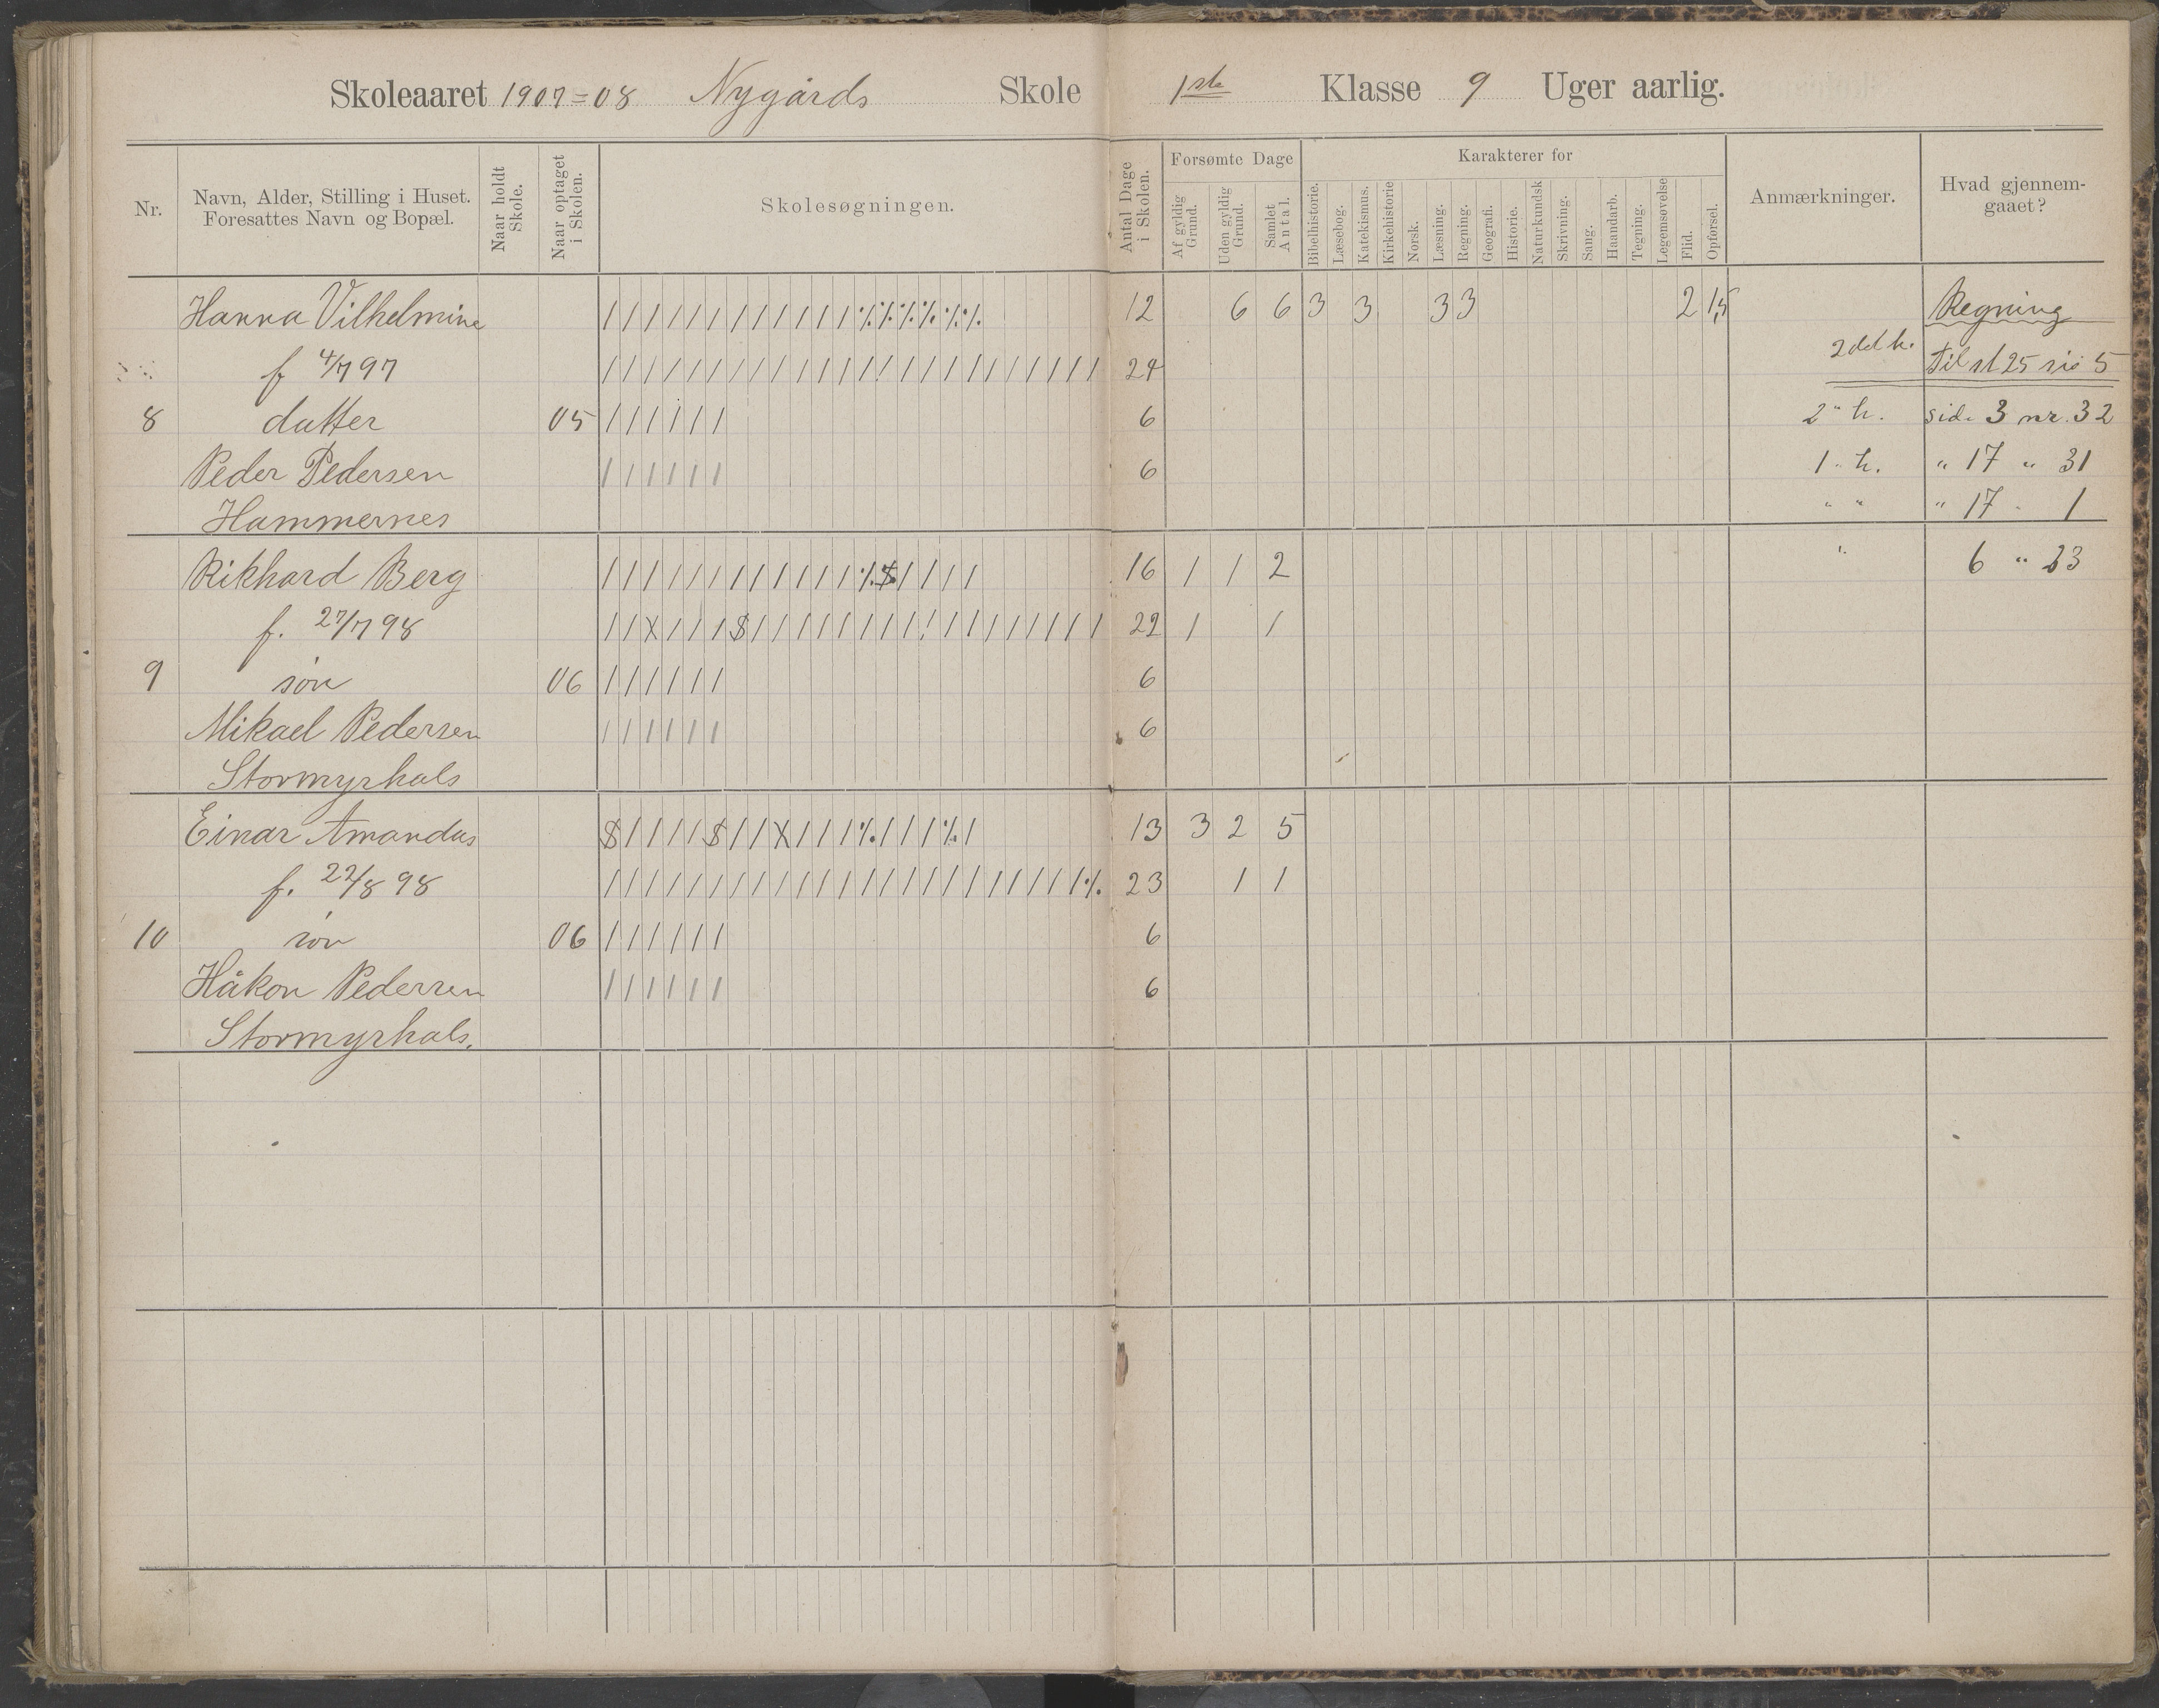 Skoleaaret 1907=08 Nygårds Skole 1ste Klasse 9 Uger aarlig.
Nr.
Navn, Alder, Stilling i Huset.
Foresattes Navn og Bopæl.
Naar holdt
Skole.
Naar optaget
i Skolen.
Skolesøgningen.
Antal Dage
i Skolen.
Forsømte Dage
Af gyldig
Grund.
Uden gyldig
Grund.
Samlet
Antal.
Karakterer for
Bibelhistorie.
Læsebog.
Katekismus.
Kirkehistorie
Norsk.
Læsning.
Regning.
Geografi.
Historie.
Naturkundsk
Skrivning.
Sang.
Haandarb.
Tegning.
Legemsøvelse
Flid.
Opførsel.
Anmærkninger.
Hvad gjennem-
gaaet?
Hanna Vilhelmine / / / / / / / / / / / / ·/. ·/. ·/. ·/. ·/. ·/. 12 6 6 3 3 3 3 2 1,5 Regning
f 4/7 97 / / / / / / / / / / / / / / / / / / / / / / / / 24 2 del h. til st 25 5
8 datter 05 / / / / / / 6 2 " h. side 3 nr. 32
Peder Pedersen / / / / / / 6 1 " h. " 17 " 31
Hammernes " " " 17 " 1
Rikhard Berg / / / / / / / / / / / / ·/. / / / / 16 1 1 2 " 6 " 23
f. 27/7 98 / / X / / / $ / / / / / / / / / / / / / / / / / 22 1 1
9 søn 06 / / / / / / 6
Mikael Pedersen / / / / / / 6
Stormyrhals
Einar Amandus $ / / / / $ / / X / / / ·/. / / / ·/. / 13 3 2 5
f. 22/8 98 / / / / / / / / / / / / / / / / / / / / / / / ·/. 23 1 1
10 søn 06 / / / / / / 6
Håkon Pedersen / / / / / / 6
Stormyrhals.